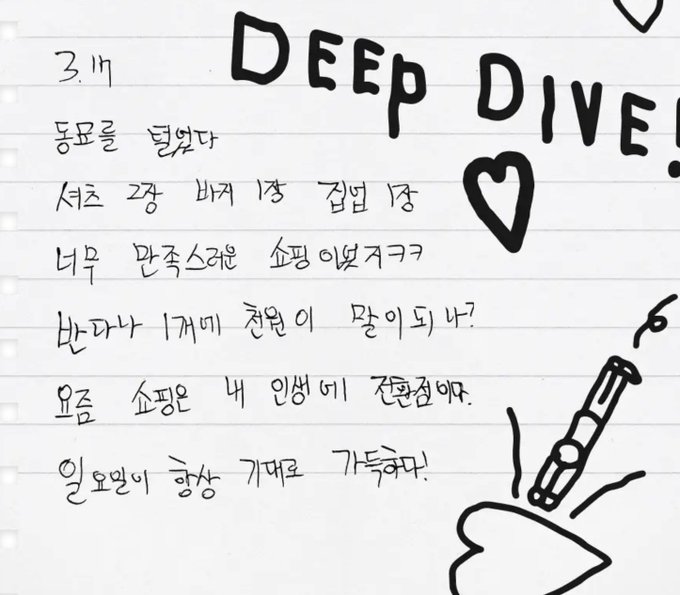 DEEP DIVE!
3.17
동묘를 털었다
셔츠 2장 바지 1장 집업 1장
너무 만족스러운 쇼핑이었지ㅋㅋ
반다나 1개에 천원이 말이 되나?
요즘 쇼핑은 내 인생에 전환점이다.
일요일이 항상 기대로 가득하다!